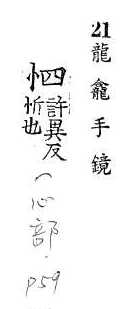 21龍龕手鏡
怬許異反
忻也
(心部.p59